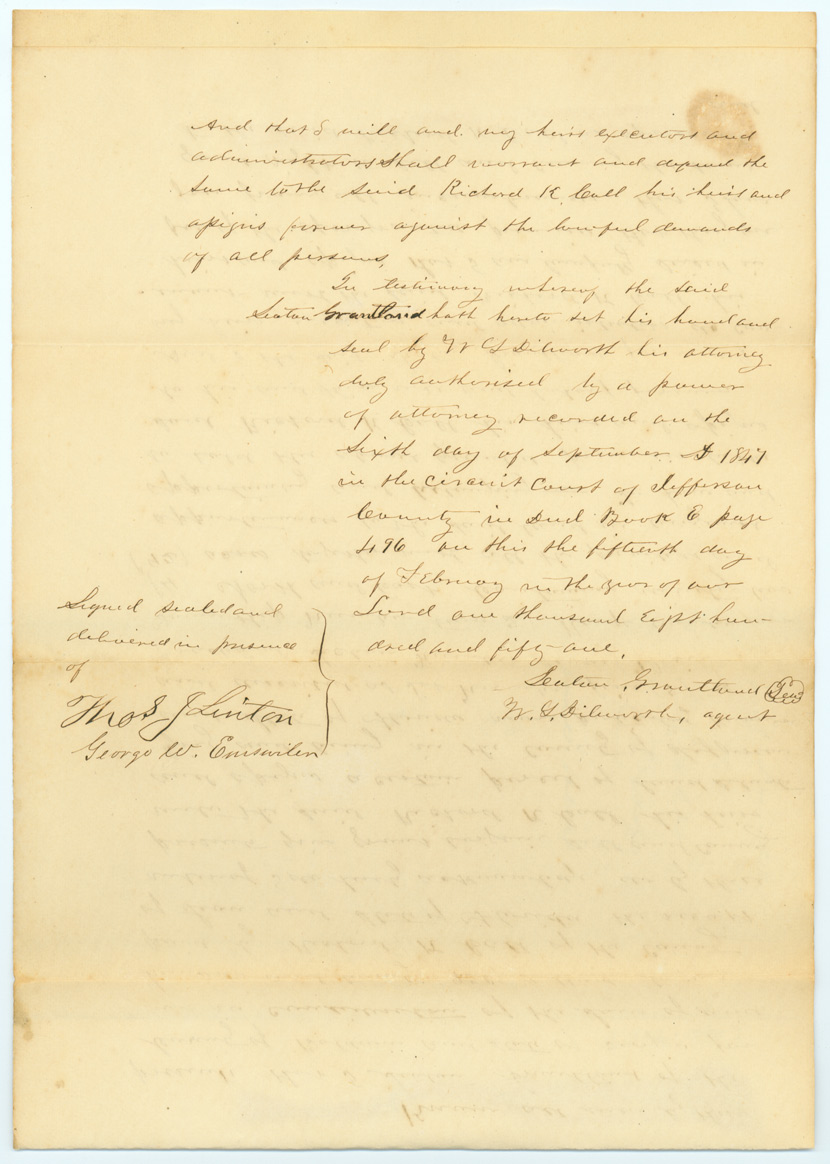 And that I will and my heirs executors and
administrators shall warrant and defend the
same to the said Richard K. Call his heirs and
assigns forever against the lawful demands
of all persons,
In testimony whereof the said
Seaton Grantland hath hereto set his hand and
seal by W S Dilworth his attorney
duly authorised by a power
of attorney recorded on the
Sixth day of September 1847
in the Circuit Court of Jefferson
County in Deed Book E page
496 on this the fifteenth day
of February in the year of our
Lord one thousand Eight hun-
dred and fifty one,
Signed sealed and
delivered in presence
of
Thos J Linton
George W. Emswiler
Seaton Grantland (Seal)
W. S. Dilworth, agent